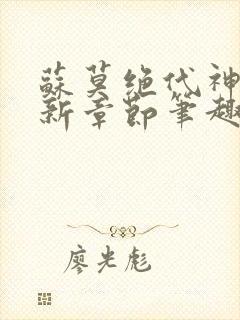 蘇莫絶代神
新章節筆趣
廖光彪